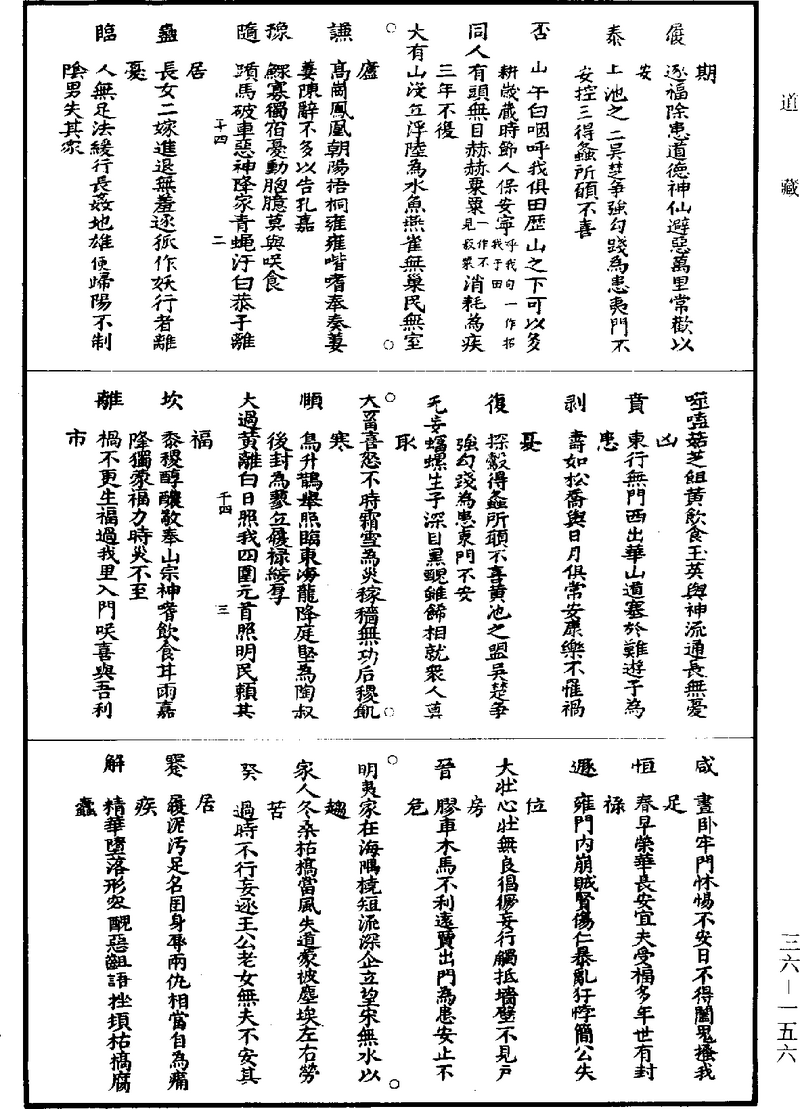 期
履 逐福除患道德神仙避惡萬里常歡以
安
泰 上池之二吳楚爭強勾踐為患夷門不
安控三得螽所願不喜
否 山午白咽呼我俱田歷山之下可以多
耕歲藏時節人保安寧呼我句一作招我于田
同人有頭無目赫赫粟粟一作不見菽粟消耗為疾
三年不復
大有山淺立浮陸為水魚燕雀無巢民無室
廬
謙 高崗鳳凰朝陽梧桐雍雍喈喈奉奏萋
萋陳辭不多以告孔嘉
豫 鰥寡獨宿憂動胸臆莫與咲食
隨 躓馬破車惡神降家青蠅汙白恭子離
居
蠱 長女二嫁進退無羞逐狐作妖行者離
憂
臨 人無足法緩行長姦地雄便歸陽不制
陰男失其家
干四 二
噬嗑菇芝俎黃飲食玉英與神流通長無憂
凶
賁 東行無門西出華山道塞於難遊子為
患
剝 壽如松喬與日月俱常安康樂不罹禍
憂
復 探鷇得螽所願不喜黃池之盟吳楚爭
強勾踐為患夷門不安
无妄蟠螺生子深目黑醜雖飾相就衆人莫
取
大畜喜怒不時霜雪為災稼穡無功后稷飢
寒
頤 鳥升鵲舉照臨東海龍降庭堅為陶叔
後封為蓼丘履祿綏厚
大過黃離白日照我四國元首照明民賴其
福
坎 黍稷醇醲敬奉山宗神嗜飲食甘雨嘉
降獨蒙福力時災不至
離 禍不更生福過我里入門咲喜與吾利
市
干四 三
咸 晝臥牢門怵惕不安日不得闔鬼搔我
足
恒 春早榮華長安宜夫受福多年世有封
祿
遯 雍門內崩賊賢傷仁暴亂狂悖簡公失
位
大壯心壯無良倡㣔妄行觸抵墻壁不見戶
房
晉 膠車木馬不利遠賈出門為患安止不
危
明夷家在海隅橈短流深企立望宋無水以
趨
家人冬桑枯槁當風失道蒙被塵埃左右勞
苦
癸 過時不行妄逐王公老女無夫不安其
居
蹇 履泥污足名困身辱兩仇相當自為痛
疾
解 精華墮落形容醜惡齟語挫頓枯槁腐
蠹
道藏
三六—一五六